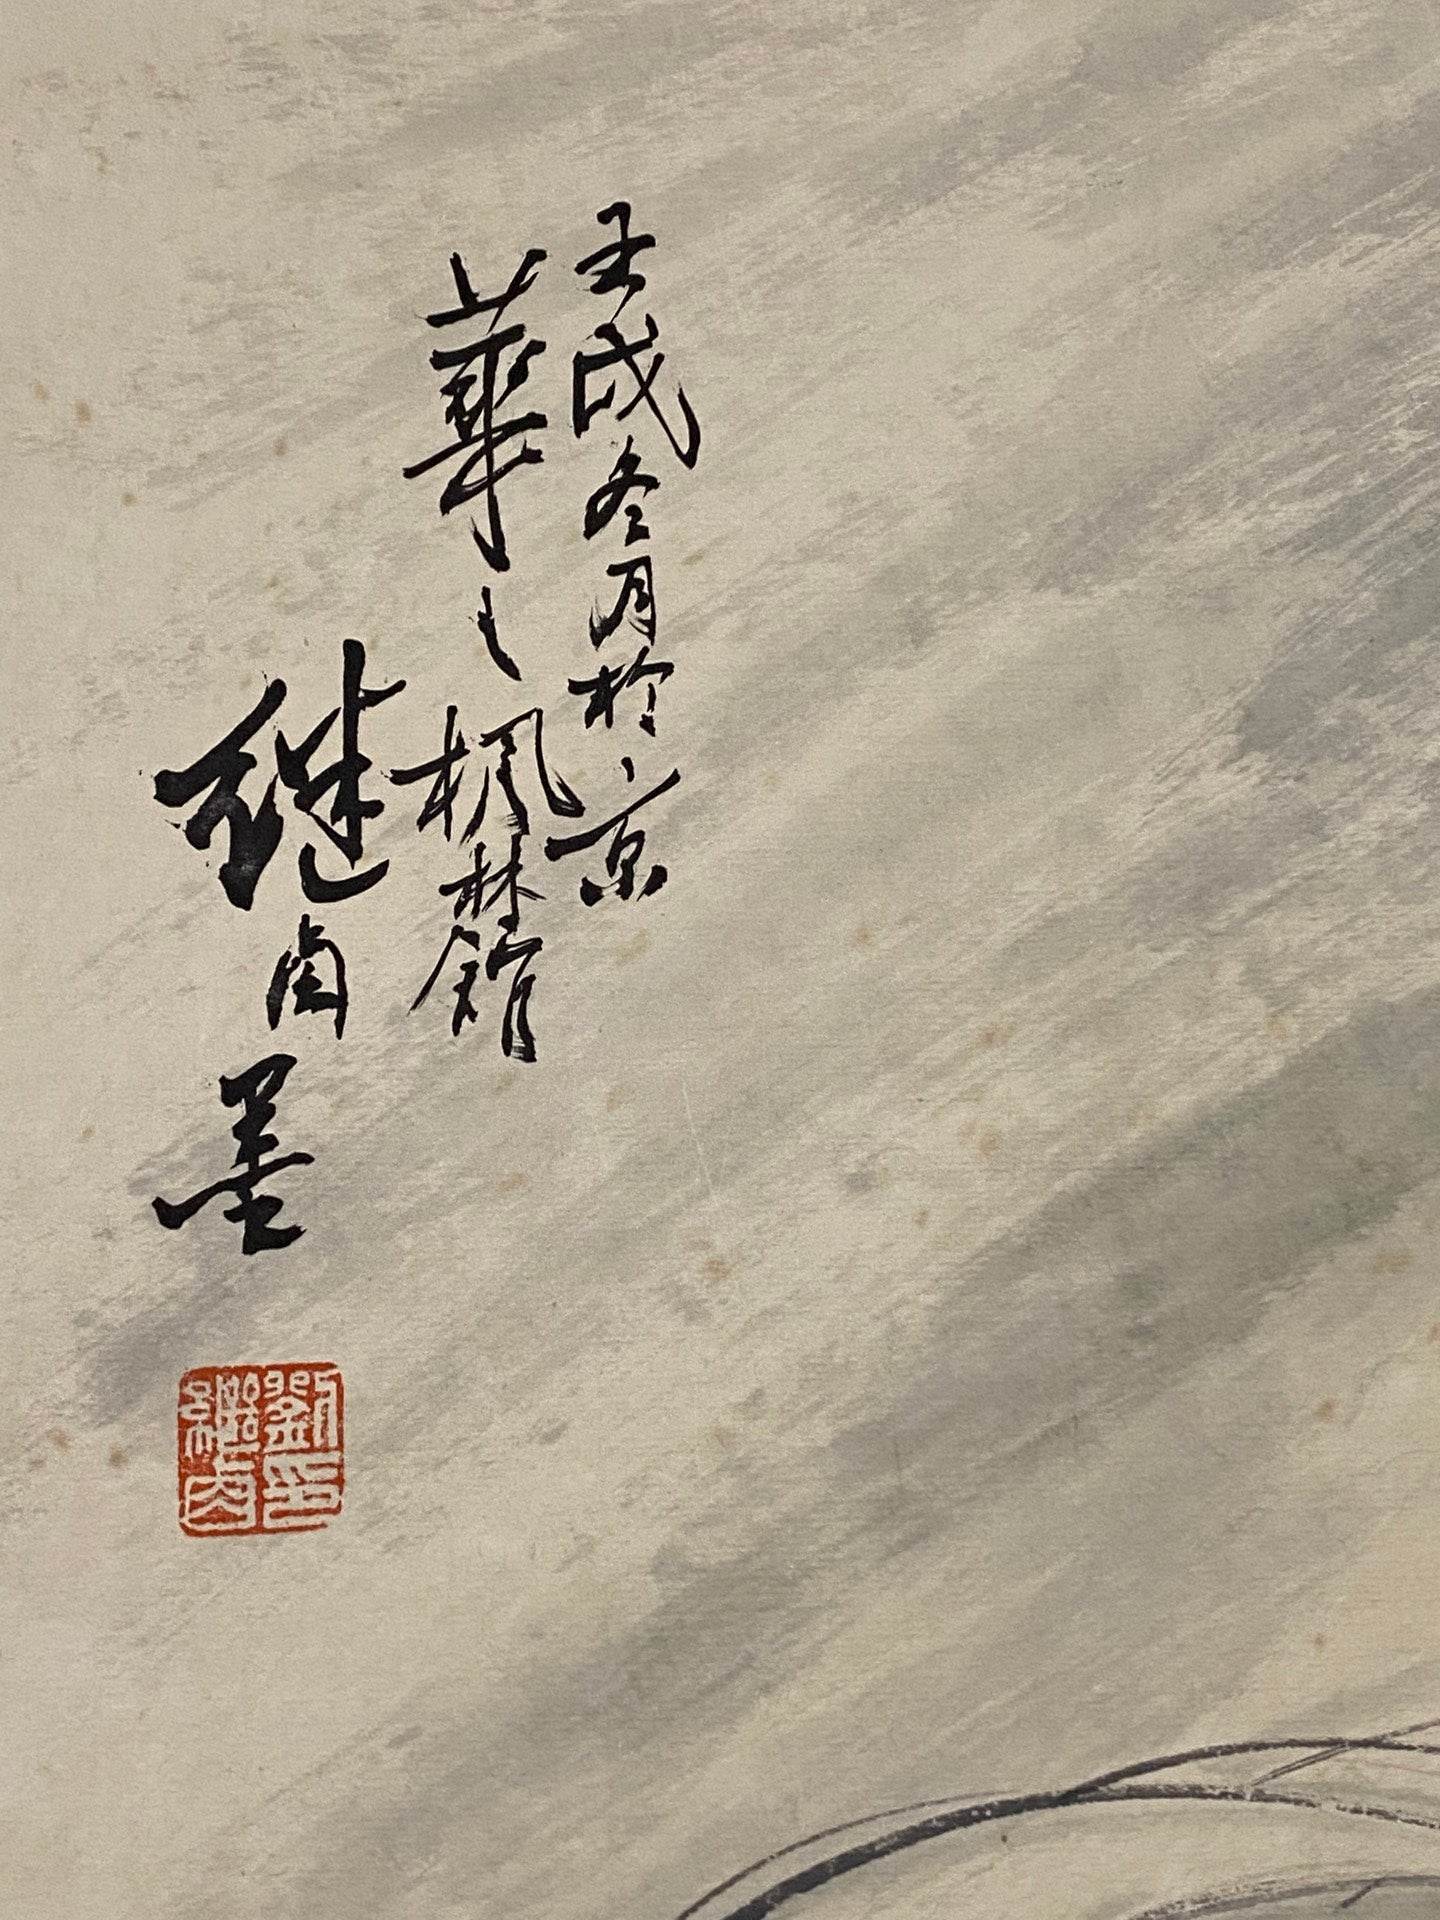 壬戌冬月於京
華之楓林館
继卣墨
劉印
繼卣